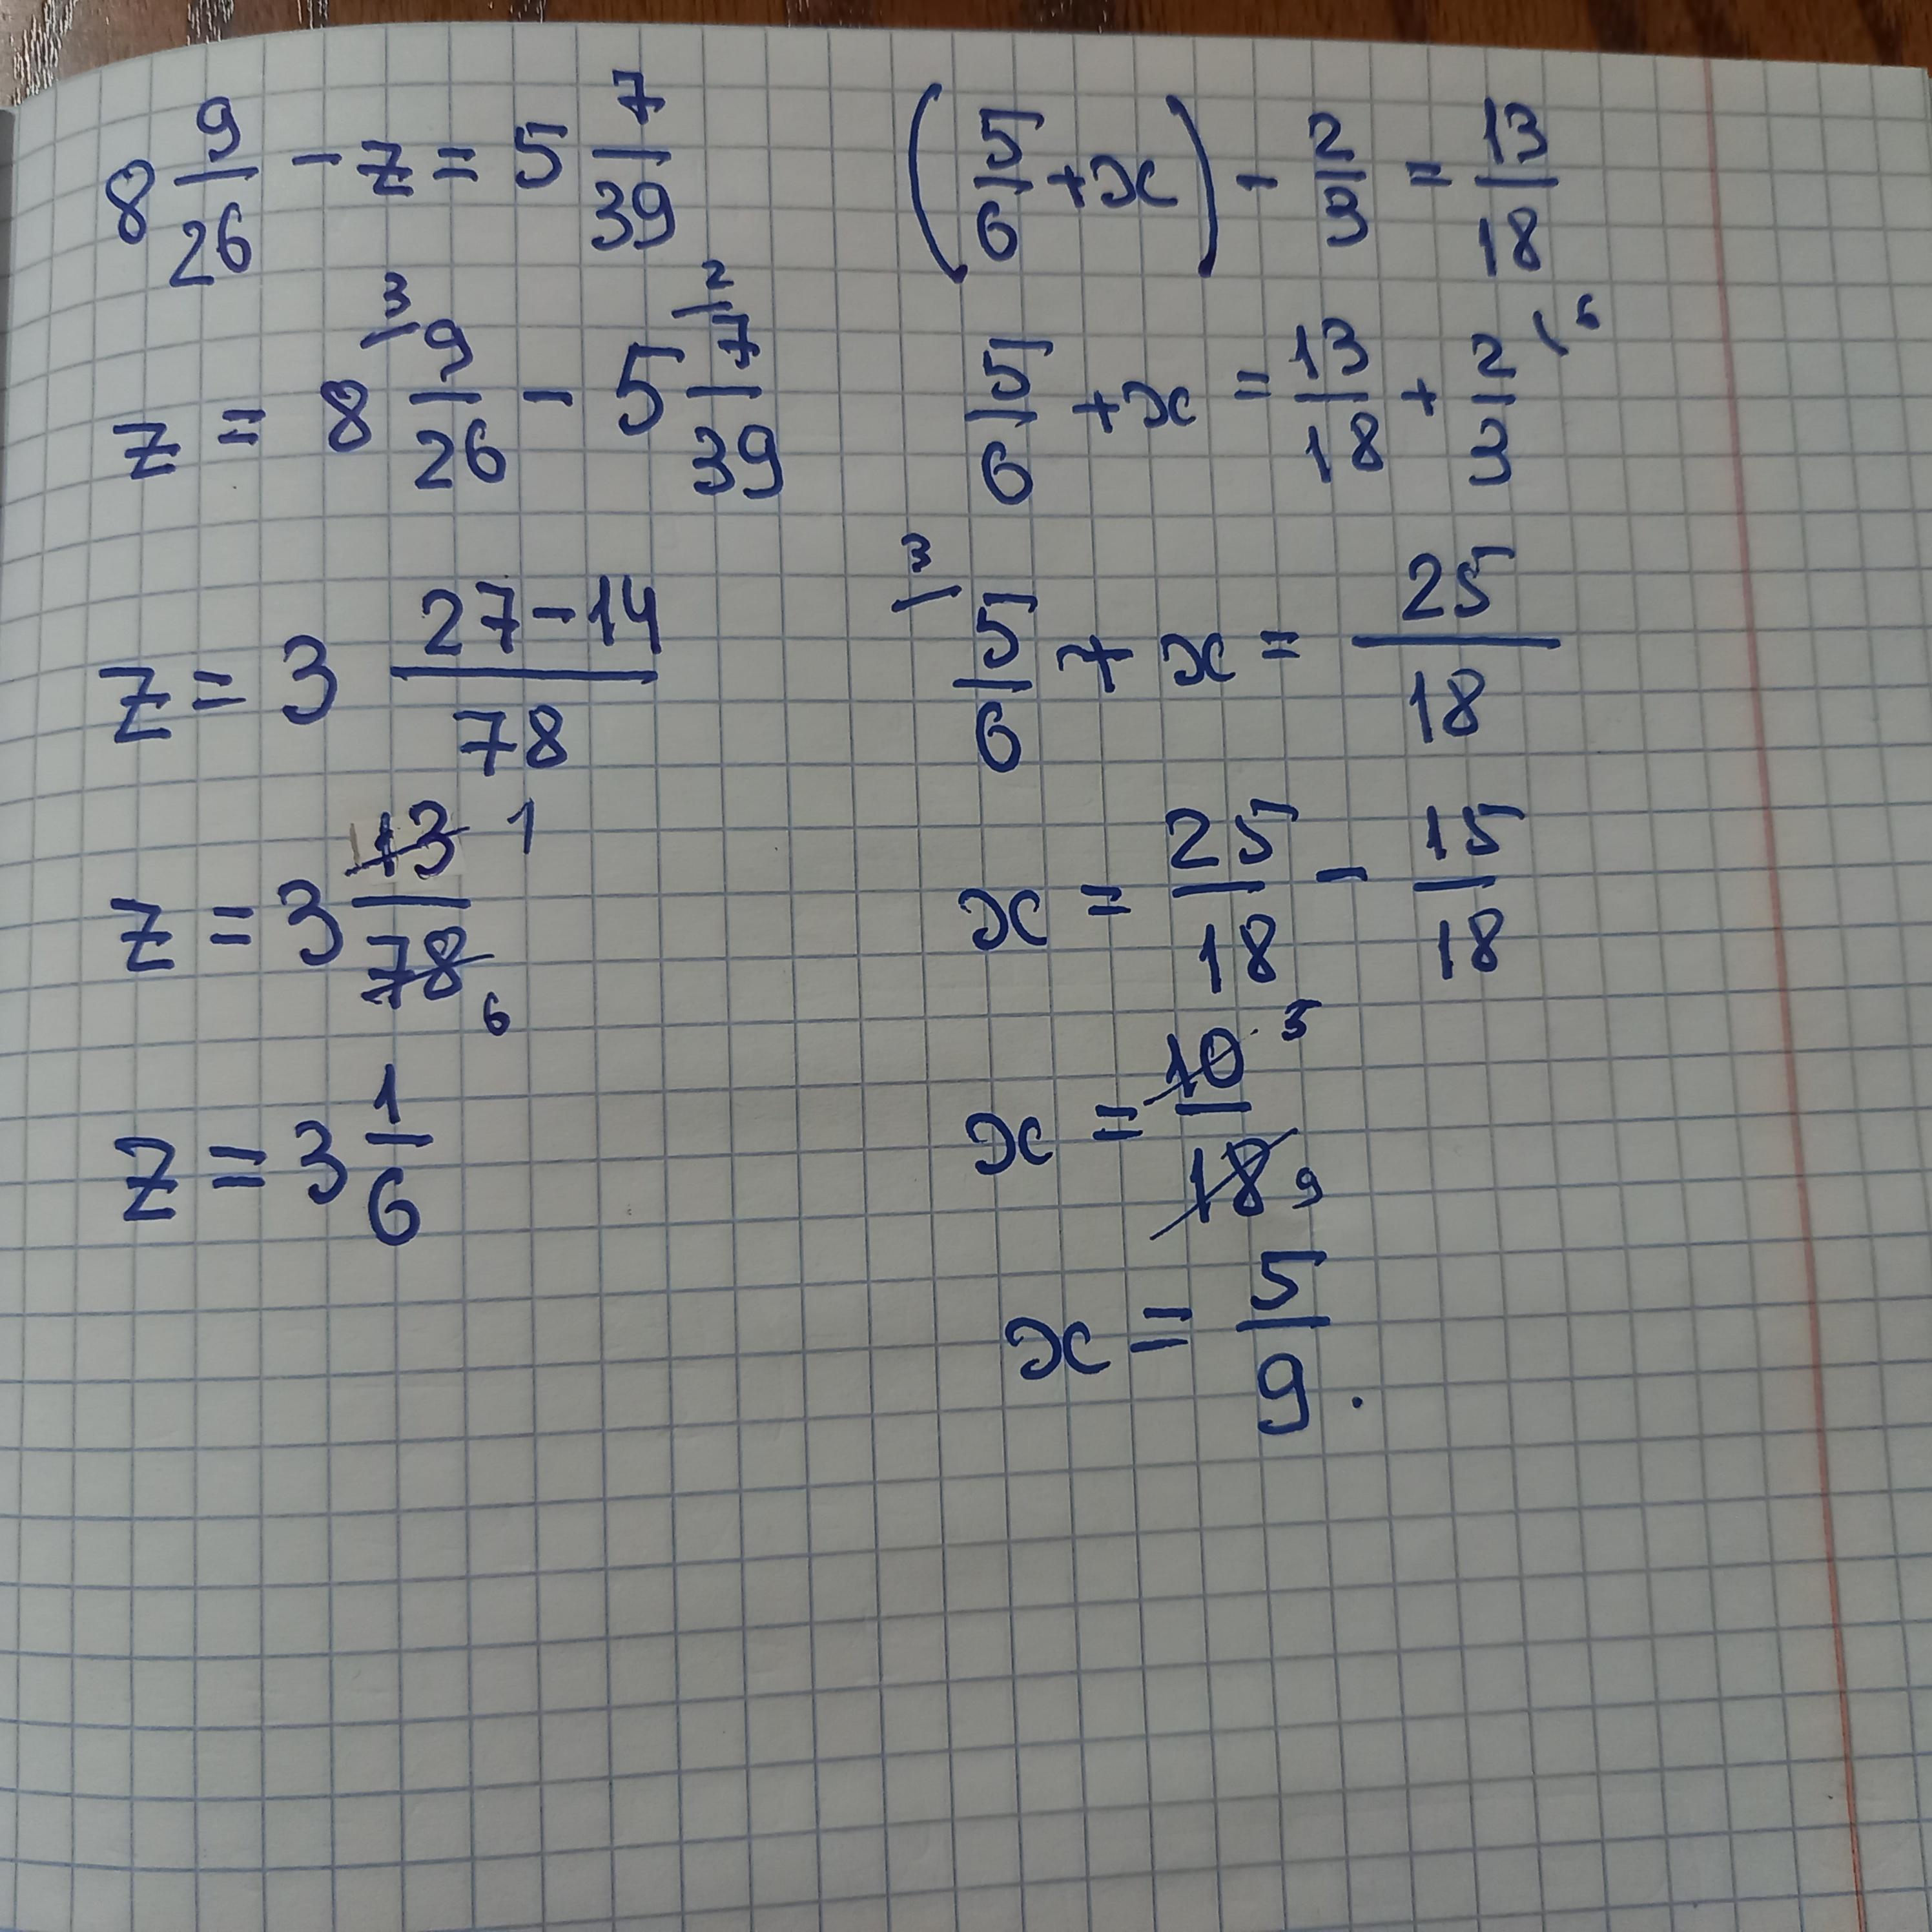 8 9/26 - z = 5 7/39
z = 8 3/ 9/26 - 5 2/ 7/39
z = 3 27-14/78
z = 3 13/78 1 6
z = 3 1/6
(5/6 + x) - 2/3 = 13/18
5/6 + x = 13/18 + 2/3 \6
3/ 5/6 + x = 25/18
x = 25/18 - 15/18
x = 10/18 5 9
x = 5/9.